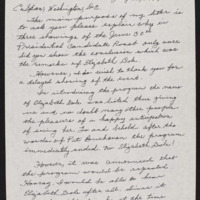 C-Span, Washington, D.C.
The main purpose of my letter is
to ask you please explain why in
three showings of the June 30th
Presidential Candidate Roast only once
did you show the conclusion which was
the remarks of Elizabeth Dole.
However, I do wish to thank you for
a delayed showing of the event.
In introducing the program the name
of Elizabeth Dole was listed thus giving
me and no doubt many other people
the pleasure of a happy anticipation
of seeing her. Lo and behold after the
words of Pat Buchanan the program
immediately ended. No Elizabeth Dole!
However it was announced that
the program would be repeated.
Hooray, I would be able to show
Elizabeth Dole after all. Since it
at the time